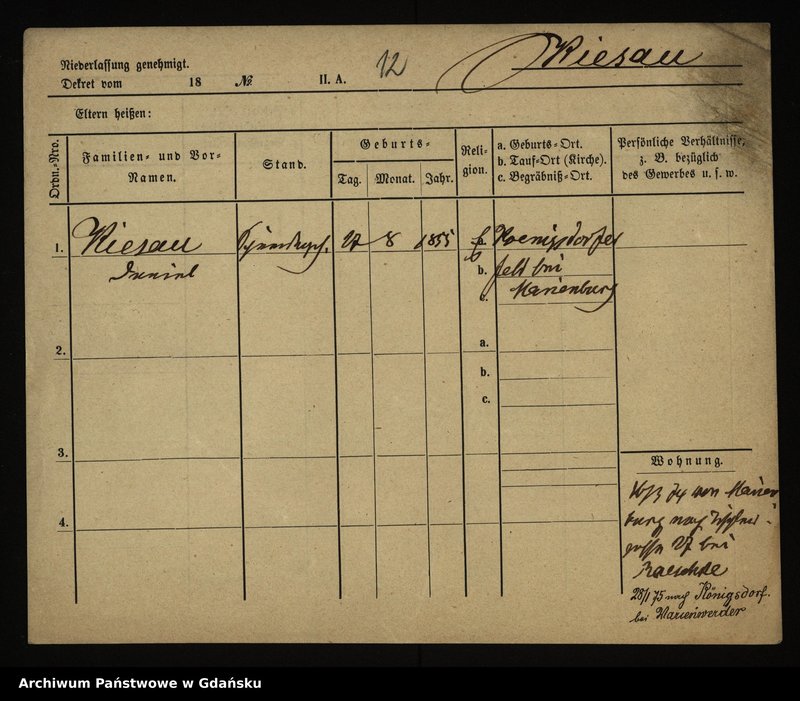 Niederlassung genehmigt.
Dekret vom 18 No. II. A. 12 Kiesau
Eltern heißen:
Ordn.-Nro.
Familien- und Vor-
Namen.
Stand.
Geburts-
Tag. Monat. Jahr.
Reli-
gion.
a. Geburts-Ort.
b. Tauf-Ort (Kirche).
c. Begräbniß-Ort.
Persönliche Verhältnisse,
z. B. bezüglich
des Gewerbes u. s. w.
1. Kiesau 27 8 1855 a. Koenigsdorfer
Daniel b. feld bei
c. Marienburg
2. a.
b.
c.
3.
4.
Wohnung.
von Marien
burg nach
27 bei
Raeschke
28/1 75 nach Königsdorf.
bei Marienwerder
Archiwum Państwowe w Gdańsku